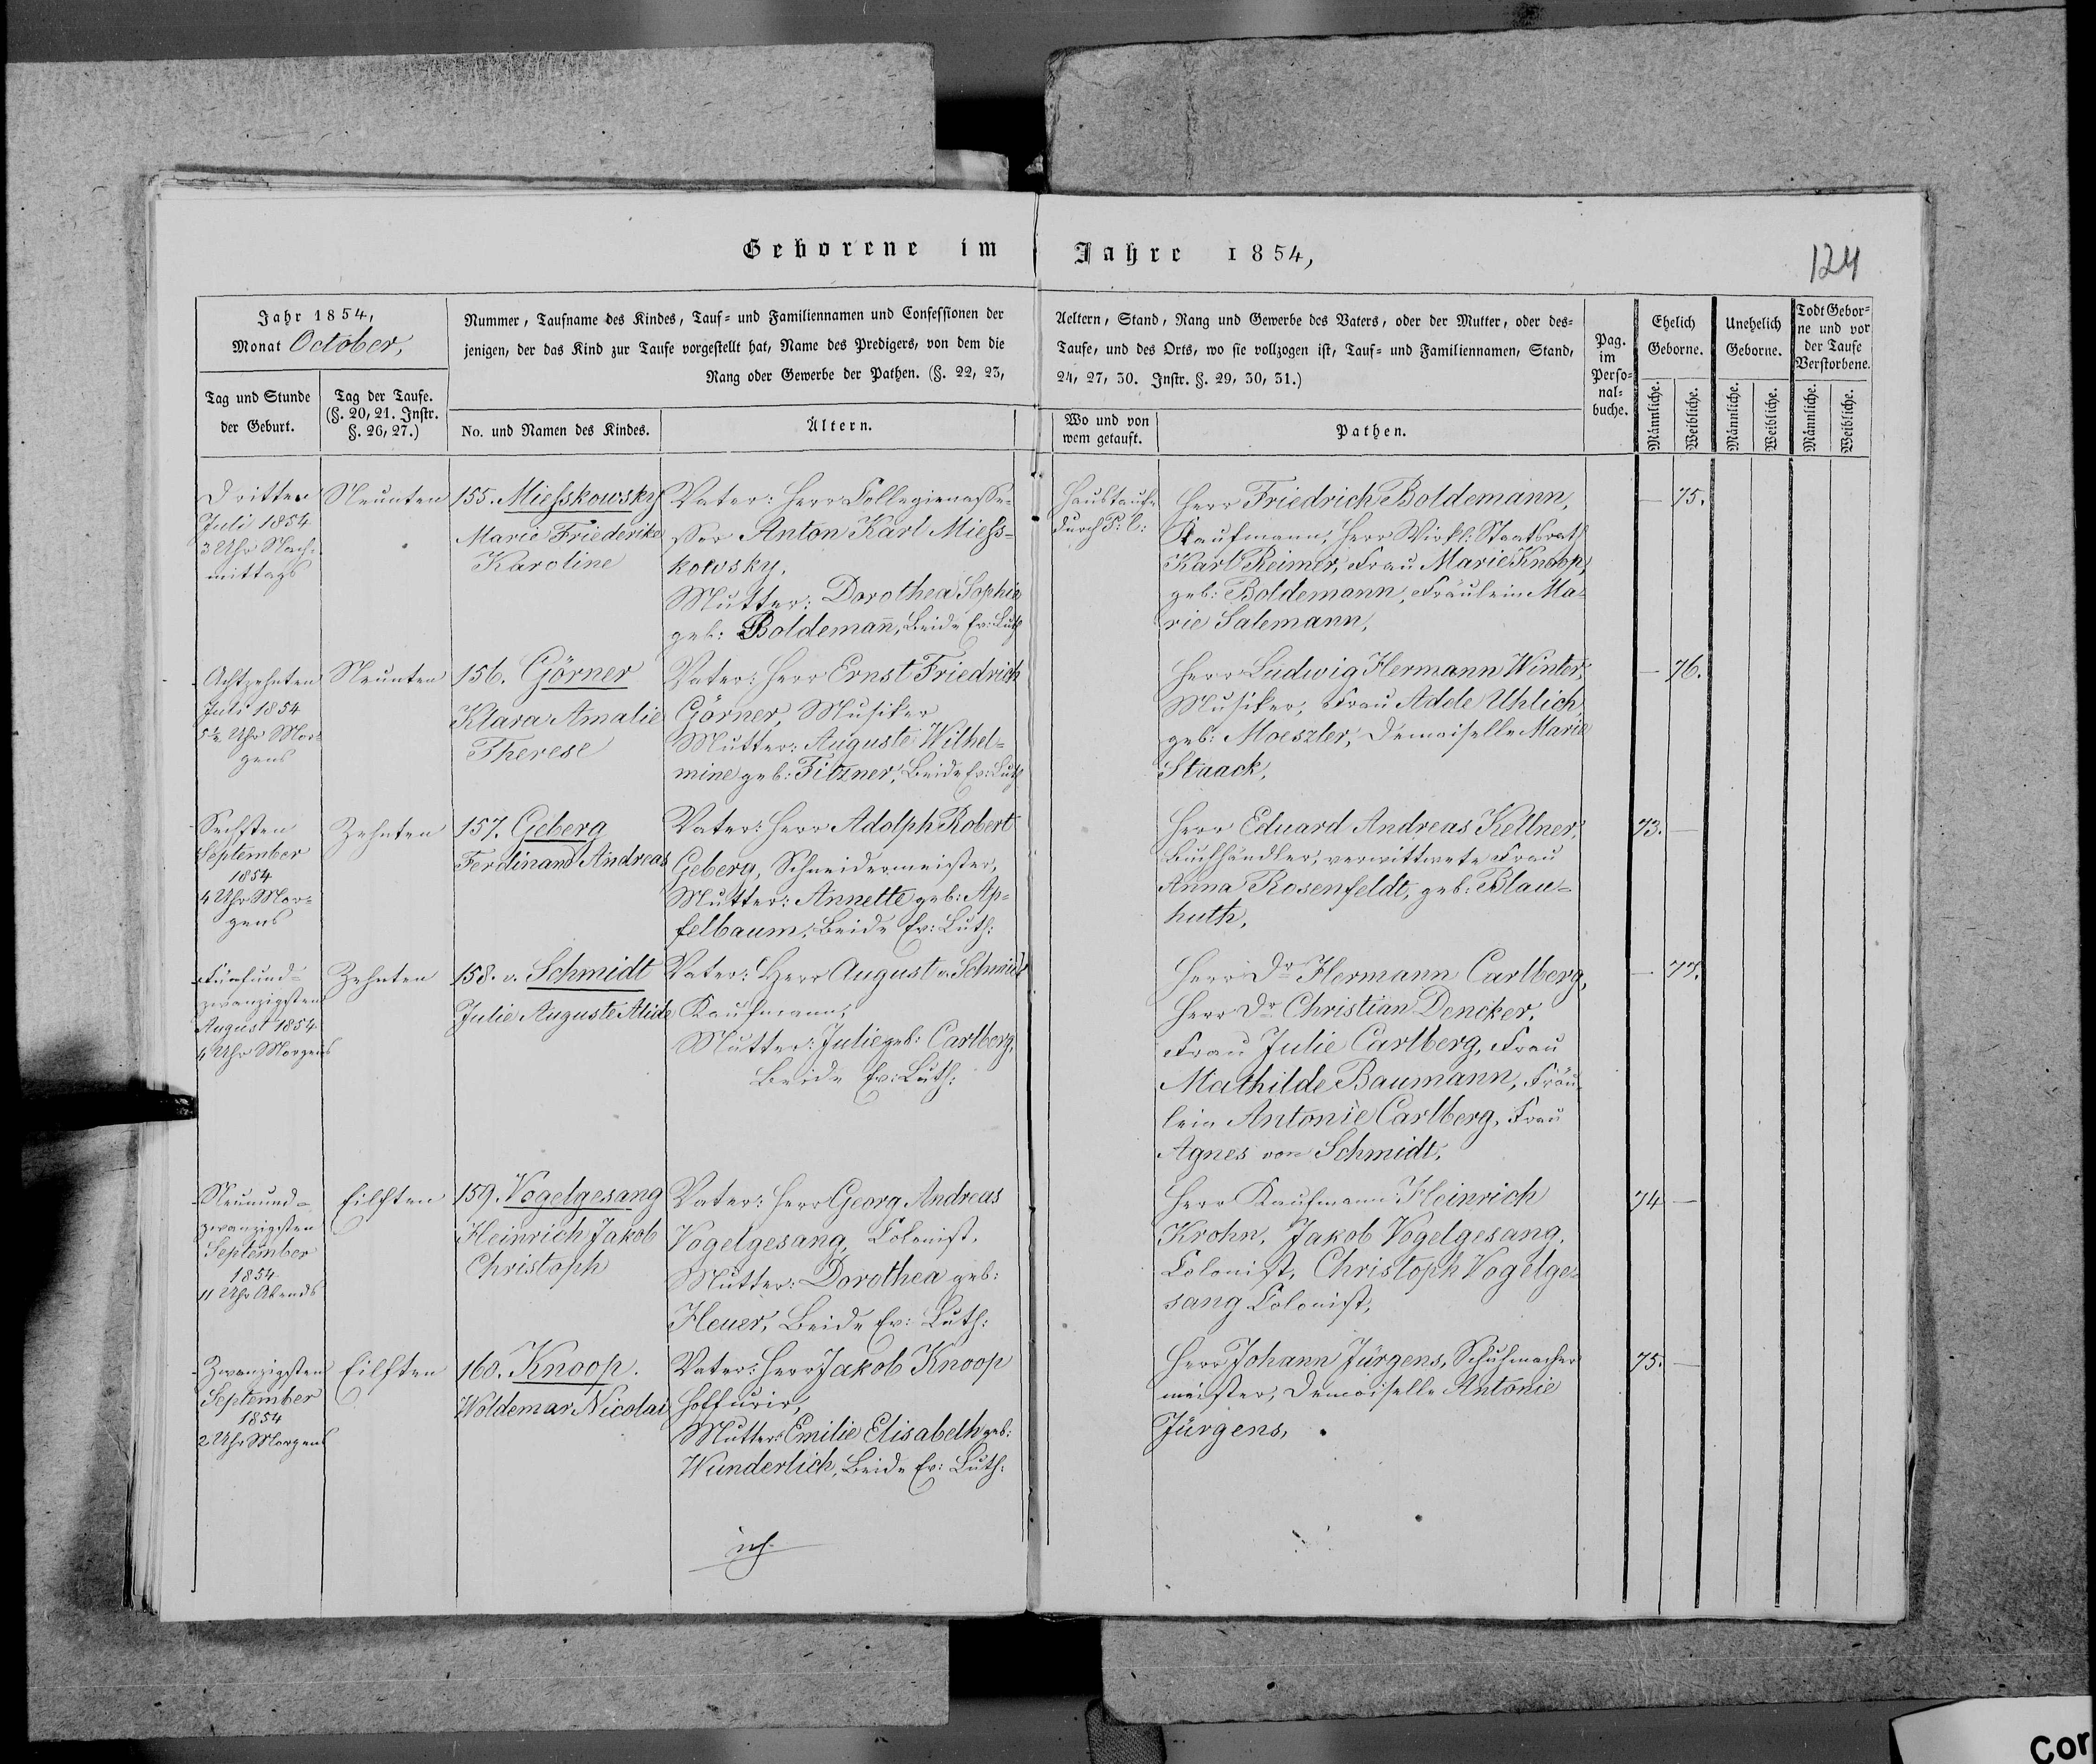 Geborene im Jahre 1854,
124
Jahr 1854,
Monat October,
Tag und Stunde
der Geburt.
Tag der Taufe.
(§. 20, 21. Instr.
§. 26, 27.)
Nummer, Taufname des Kindes, Tauf- und Familiennamen und Confessionen der
jenigen, der das Kind zur Taufe vorgestellt hat, Name des Predigers, von dem die
Rang oder Gewerbe der Pathen. (§. 22, 23,
No. und Namen des Kindes.
Ältern.
Aeltern, Stand, Rang und Gewerbe des Vaters, oder der Mutter, oder des-
Taufe, und des Orts, wo sie vollzogen ist, Tauf- und Familiennamen, Stand,
24, 27, 30. Instr. §. 29, 30, 31.)
Wo und von
wem getauft.
Pathen.
Pag.
im
Perso-
nal-
buche.
Ehelich
Geborne.
Unehelich
Geborne.
Todt Gebor-
ne und vor
der Taufe
Verstorbene.
Männliche.
Weibliche.
Männliche.
Weibliche.
Männliche.
Weibliche.
Dritten
Juli 1854
3 Uhr Nach-
mittags
Neunten
155. Miefskowsky
Marie Friederike
Karoline
Vater: Herr Collegienasse-
sor Anton Karl Miefs-
kowsky,
Mutter: Dorothea Sophia
geb: Boldemañ, Beide Ev: Luth
Haustaufe
durch P: C:
Herr Friedrich Boldemann,
Kaufmann, Herr Wirkl: Staatsrath
Karl Reimer, Frau Marie Knoop,
geb: Boldemann, Fräulein Ma-
rie Salemann,
— 75.
Achtzehnten
Juli 1854
5½ Uhr Mor-
gens
Neunten
156. Görner
Klara Amalie
Therese
Vater: Herr Ernst Friedrich
Görner, Musiker
Mutter: Auguste Wilhel-
mine geb: Fitzner, Beide Ev: Luth
Herr Ludwig Hermann Winter,
Musiker, Frau Adele Uhlich
geb: Moeszler, Demoiselle Marie
Staack,
— 76.
Sechsten
September
1854
4 Uhr Mor-
gens
Zehnten
157. Geberg
Ferdinand Andreas
Vater: Herr Adolph Robert
Geberg, Schneidermeister,
Mutter: Annette geb: Ap-
felbaum, Beide Ev: Luth:
Herr Eduard Andreas Kellner,
Buchhändler, verwittwete Frau
Anna Rosenfeldt, geb: Blau-
huth,
73. —
Fünfund-
zwanzigsten
August 1854
4 Uhr Morgens
Zehnten
158. v. Schmidt
Julie Auguste Alide
Vater: Herr August v. Schmidt
Kaufmann,
Mutter: Julie geb: Carlberg,
Beide Ev: Luth:
Herr Dr Hermann Carlberg,
Herr Dr Christian Dencker,
Frau Julie Carlberg, Frau
Mathilde Baumann, Fräu-
lein Antonie Carlberg, Frau
Agnes von Schmidt,
— 77.
Neunund-
zwanzigsten
September
1854
11 Uhr Abends
Eilften
159. Vogelgesang
Heinrich Jakob
Christoph
Vater: Herr Georg Andreas
Vogelgesang, Colonist,
Mutter: Dorothea geb:
Heuer, Beide Ev: Luth:
Herr Kaufmann Heinrich
Krohn, Jakob Vogelgesang,
Colonist, Christoph Vogelge-
sang Colonist,
74 —
Zwanzigsten
September
1854
2 Uhr Morgens
Eilften
160. Knoop.
Woldemar Nicolai
Vater: Herr Jakob Knoop
Hoffurir,
Mutter: Emilie Elisabeth geb:
Wunderlich, Beide Ev: Luth:
Herr Johann Jürgens, Schuhmacher
meister, Demoiselle Antonie
Jürgens,
75. —
Cor